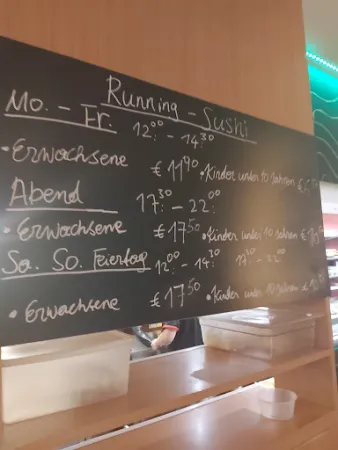 Running - Sushi
Mo. - Fr. 12:00 - 14:30
• Erwachsene € 11,90 • Kinder unter 10 Jahren €
Abend 17:30 - 22:00
• Erwachsene € 17,50 • Kinder unter 10 Jahren €
Sa. So. Feiertag 12:00 - 14:30 17:30 - 22:00
• Erwachsene € 17,50 • Kinder unter 10 Jahren €